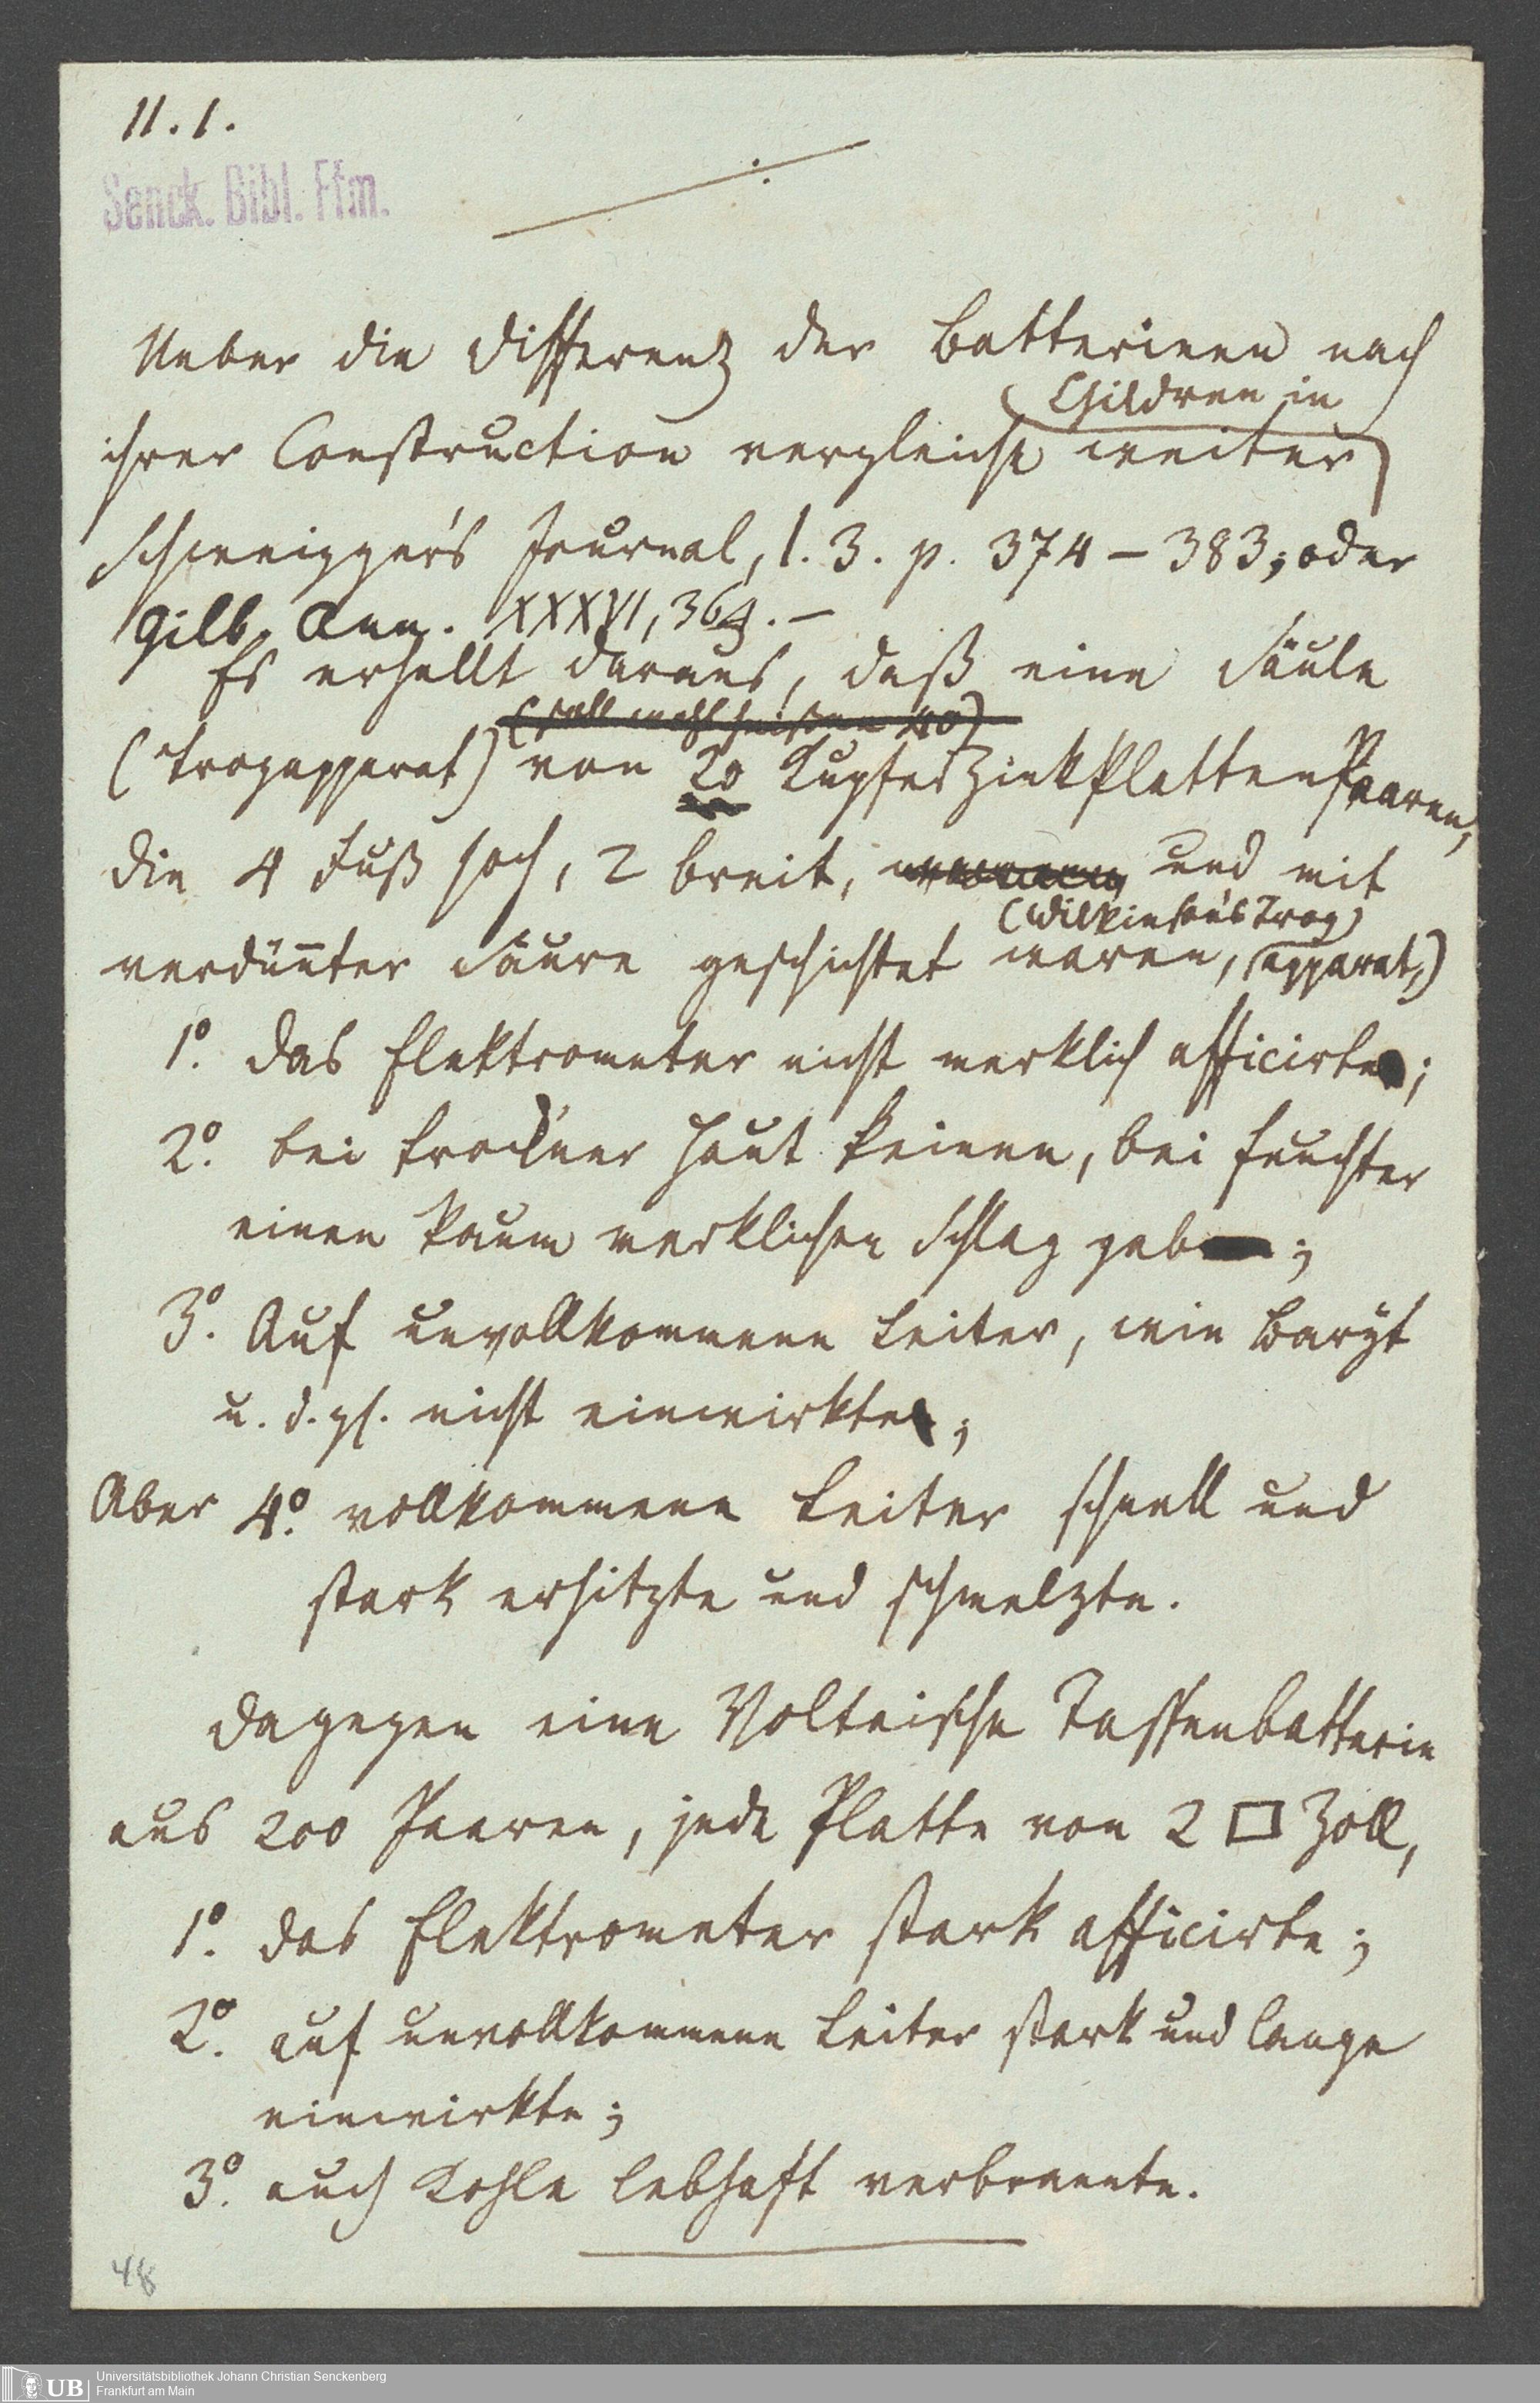 11.1.
Senck. Bibl. Ffm.
Ueber die Differenz der Batterieen nach
Children in
ihrer Construction vergleiche weiter
Schweigger's Journal, 1. 3. p. 374 – 383; oder
Gilb. Ann. XXXVI, 364. –
Es erhellt daraus, daß eine Säule
(soll wohl heißen 40)
(Trogapparat) von 20 Kupfer Zink Platten Paaren,
die 4 Fuß hoch, 2 breit, und mit
(Wilkinson's Trog)
verdünnter Säure geschichtet waren, apparat,)
1º. das Elektrometer nicht merklich afficirte;
2º. bei trockner Haut keinen, bei feuchter
einen kaum merklichen Schlag gab;
3º. Auf unvollkommene Leiter, wie Baryt
u. d. gl. nicht einwirkte;
Aber 4º. vollkommene Leiter schnell und
stark erhitzte und schmelzte.
Dagegen eine Voltaische Tassenbatterie
aus 200 Paaren, jede Platte von 2 □ Zoll,
1º. das Elektrometer stark afficirte;
2º. auf unvollkommene Leiter stark und lange
einwirkte;
3º. auch Kohle lebhaft verbrannte.
48
UB Universitätsbibliothek Johann Christian Senckenberg
Frankfurt am Main